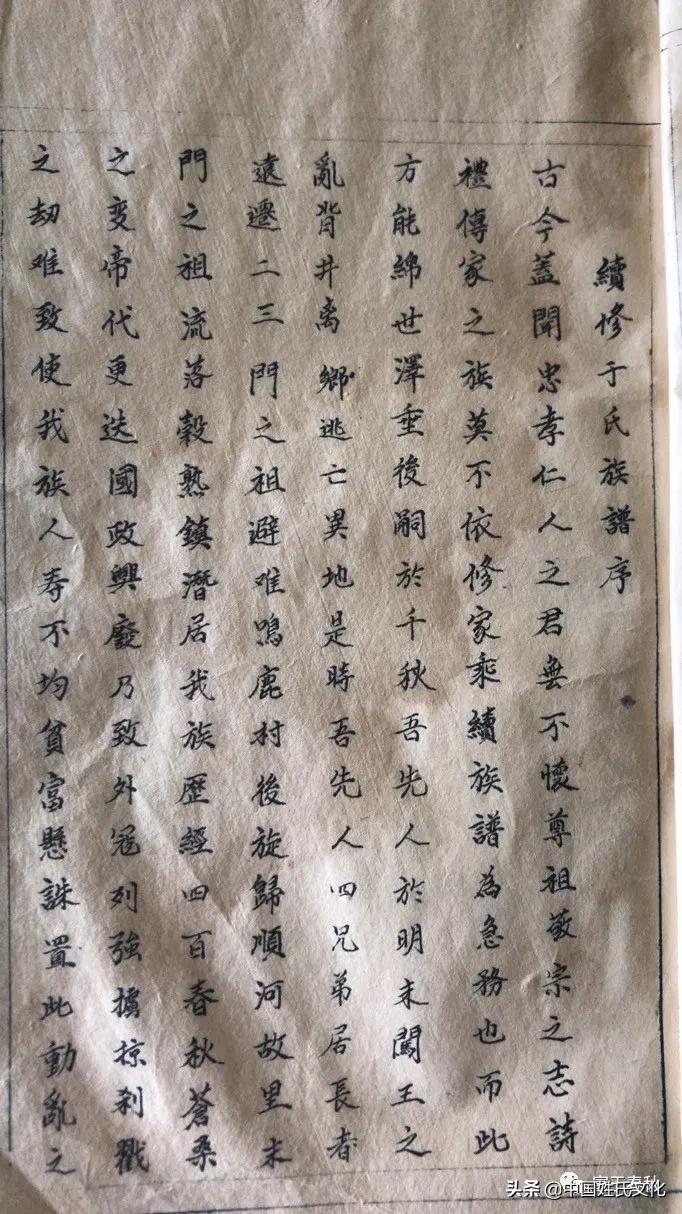 續修于氏族譜序
古今蓋聞忠孝仁人之君無不懷尊祖敬宗之志詩
禮傳家之族莫不依修家乘續族譜為急務也而此
方能綿世澤垂後嗣於千秋吾先人於明末闖王之
亂背井离鄉逃亡異地是時吾先人四兄弟居長者
遠遷二三門之祖避难鳴鹿村後旋歸順河故里末
門之祖流落榖熟鎮潛居我族歷經四百春秋蒼桑
之变帝代更迭國政興廢乃致外冦列強擄掠刹戳
之劫难致使我族人寿不均貧富懸誅置此動亂之
头条 @中国姓氏文化